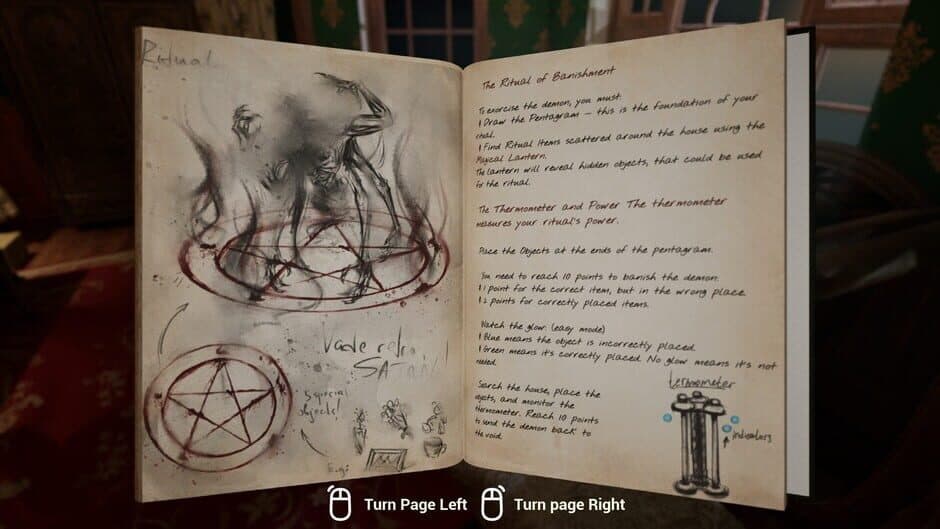 Ritual
Vade retro
SATAN!
5 special
objects!
The Ritual of Banishment
To exorcise the demon, you must:
Draw the Pentagram – this is the foundation of your
ritual.
Find Ritual Items scattered around the house using the
Magical Lantern.
The lantern will reveal hidden objects, that could be used
for the ritual.
The Thermometer and Power The thermometer
measures your ritual's power.
Place the Objects at the ends of the pentagram.
You need to reach 10 points to banish the demon:
1 point for the correct item, but in the wrong place.
2 points for correctly placed items.
Watch the glow: (easy mode)
Blue means the object is incorrectly placed.
Green means it's correctly placed. No glow means it's not
needed.
Search the house, place the
objects, and monitor the
thermometer. Reach 10 points
to send the demon back to
the void.
termometer
indicators
Turn Page Left
Turn page Right